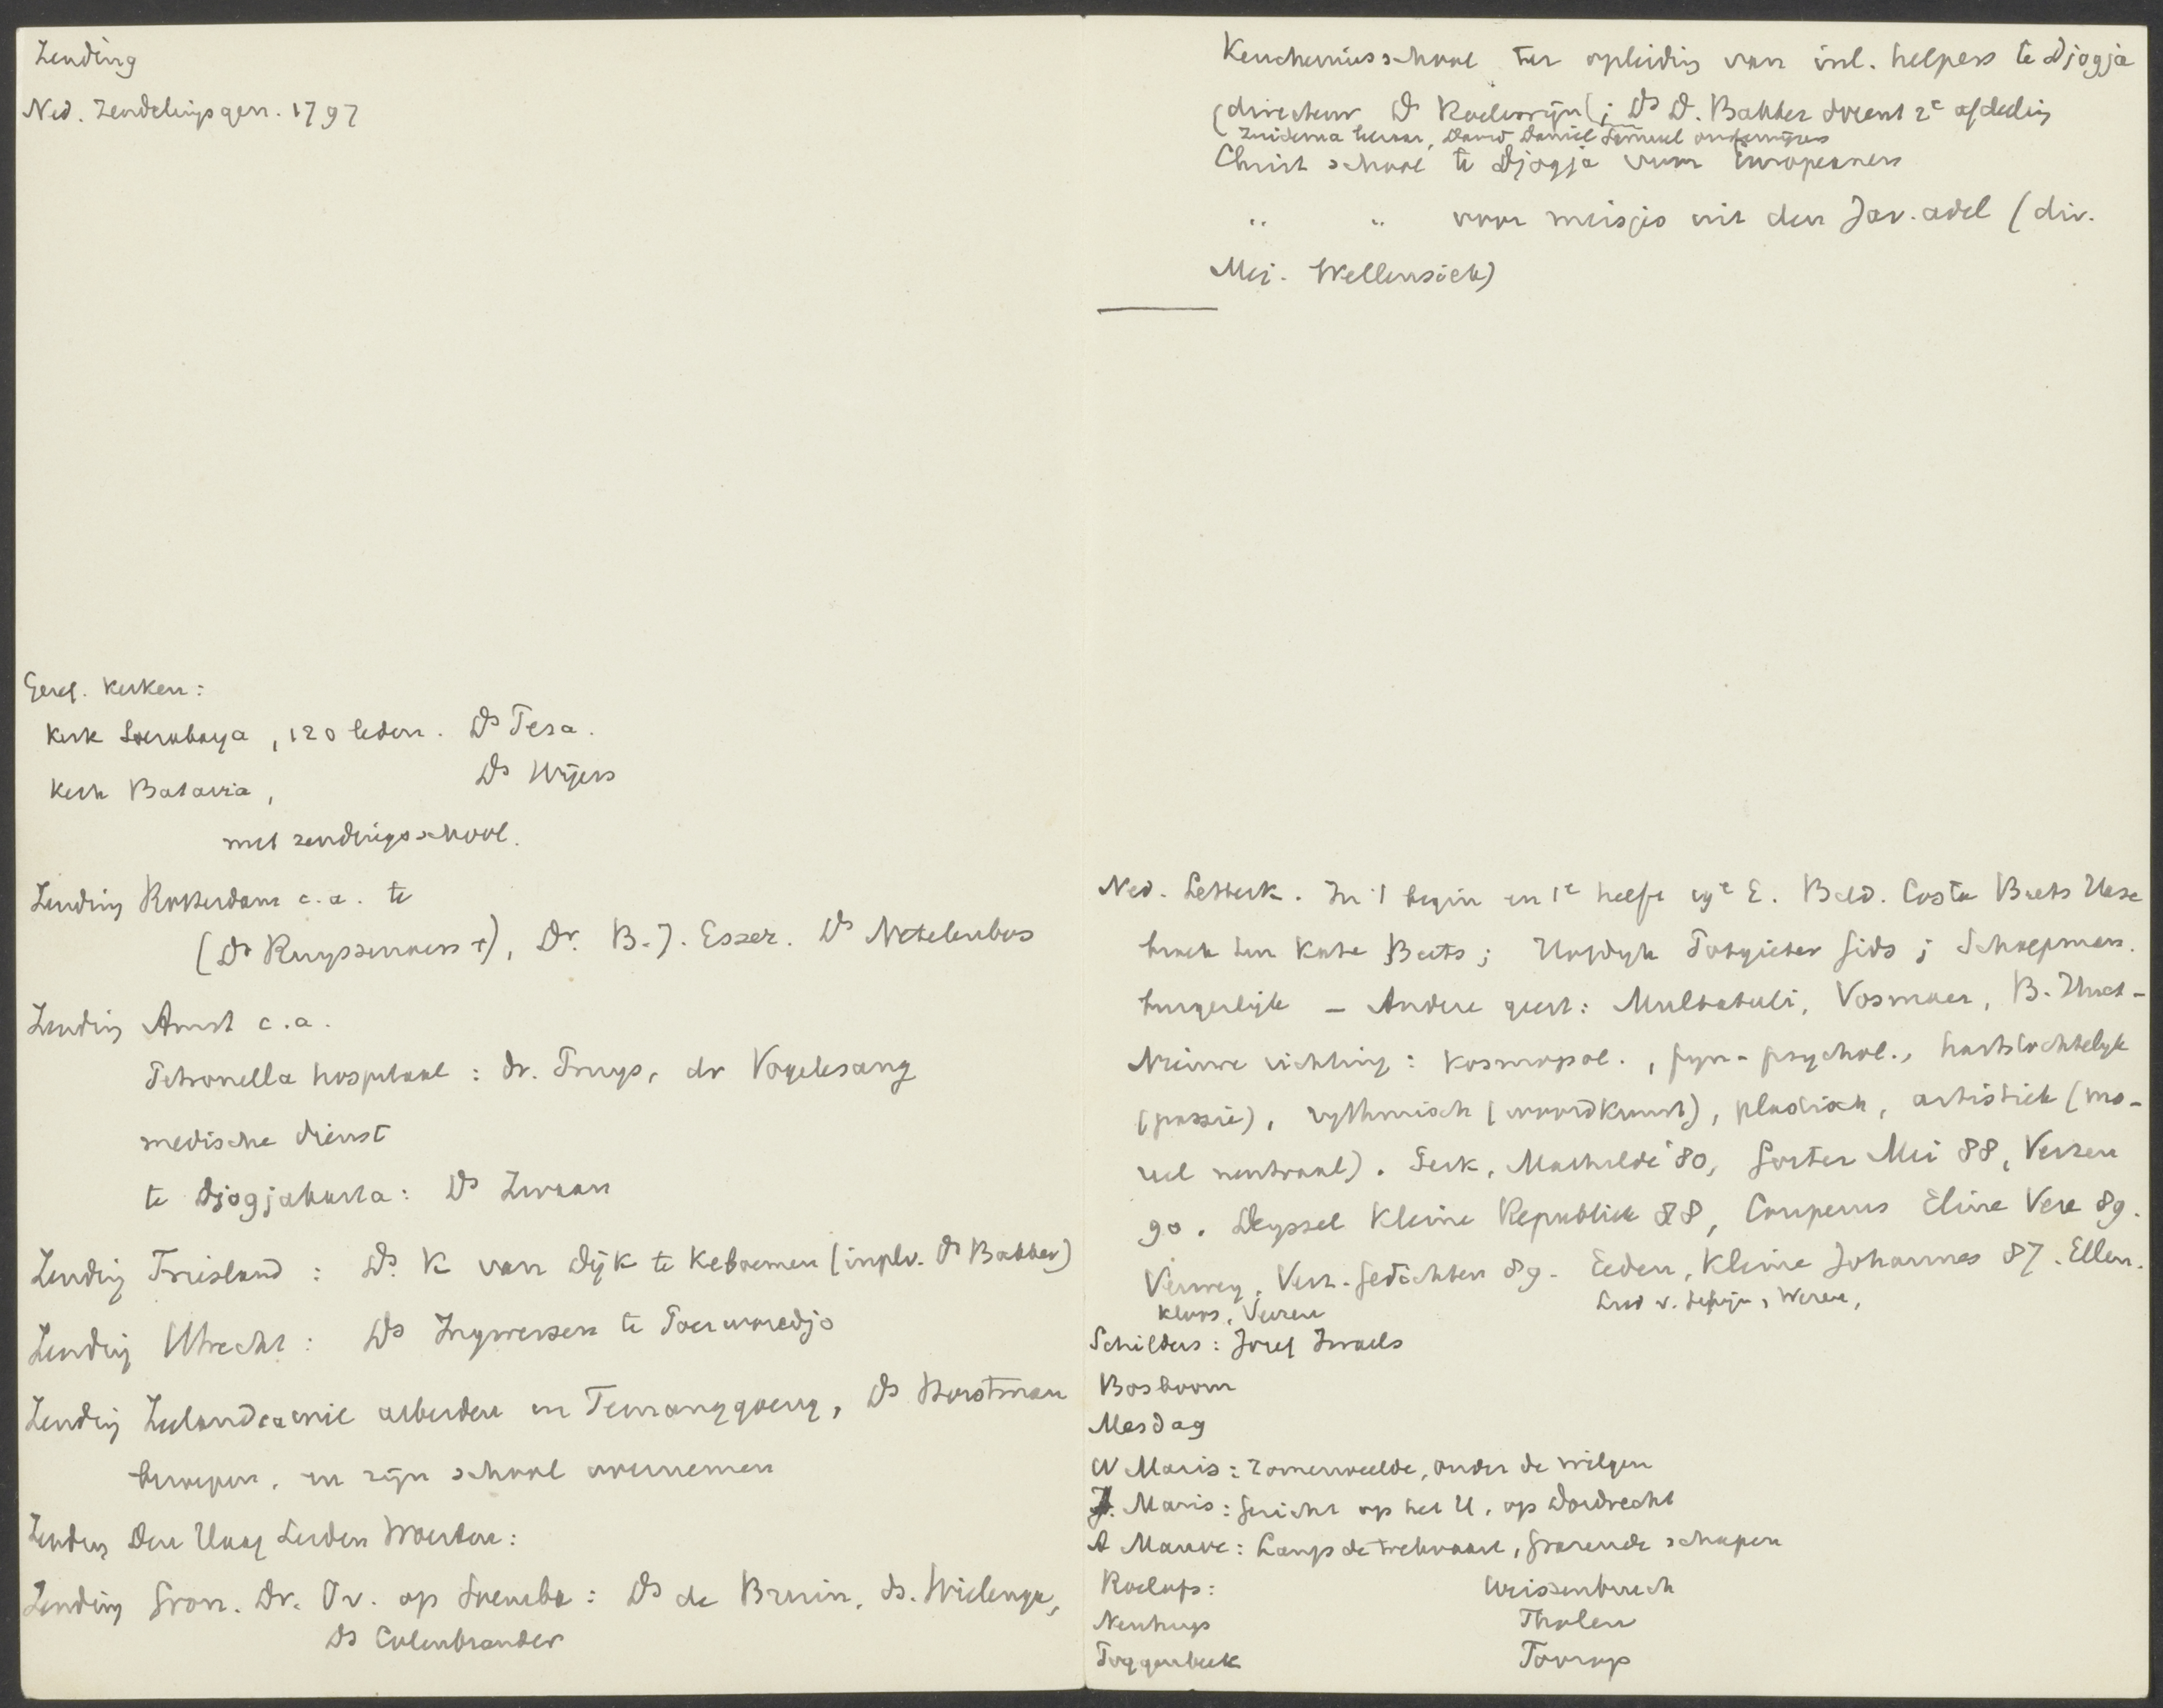 Zending
Ned. Zendelingsgen. 1797
Geref. Kerken:
Kerk Soerabaya, 120 leden. Ds Pesa.
Kerk Batavia, Ds Wijers
met zendingsschool.
Zending Rotterdam c.a. te
(Ds Ruyssenaers †), Dr. B.J. Esser. Ds Netelenbos
Zending Amst c.a.
Petronella hospitaal: dr. Pruys, dr Vogelesang
medische dienst
te Djogjakarta: Ds Zwaan
Zending Friesland: Ds. K van Dijk te Keboemen (inplv. Ds Bakker)
Zending Utrecht: Ds Ingwersen te Poerworedjo
Zending Zeeland ca wil arbeiden in Temanggoeng, Ds Horstman
beroepen, en zijn school overnemen
Zending Den Haag Leiden Woerden:
Zending Gron. Dr. Ov. op Soemba: Ds de Bruin, ds. Wielenga,
Ds Colenbrander
Keucheniusschool ter opleiding van inl. helpers te Djogja
(directeur Ds Roelewijn); Ds D. Bakker docent 2e afdeling
Zuidema leeraar, David Daniel Samuel onderwijzers
Christ school te Djogja voor Europeanen
" " voor meisjes uit den Jav. adel (dir.
Mej. Wellensiek)
Ned. Letterk. In 't begin en 1e helft 19e E. Bild. Costa Beets Hase
broek ten Kate Beets; Hofdijk Potgieter Gids; Schaepman.
burgerlijk — Andere geest: Multatuli, Vosmaer, B. Huet —
Nieuwe richting: kosmopol., fyn-psychol., hartstochtelyk
(passie), rythmisch (woordkunst), plastisch, artistiek (mo-
reel neutraal). Perk, Mathilde '80, Gorter Mei 88, Verzen
90. Deyssel Kleine Republiek 88, Couperus Eline Vere 89.
Verwey, Verz. Gedichten 89. Eeden, Kleine Johannes 87. Ellen.
Kloos, Verzen Lied v. Schijn, Wezen,
Schilders: Jozef Israels
Bosboom
Mesdag
W Maris: Zomerweelde, onder de wilgen
J. Maris: Gezicht op het IJ, op Dordrecht
A Mauve: Langs de trekvaart, Grazende schapen
Roelofs: Weissenbruch
Neuhuys Tholen
Poggenbeek Toorop